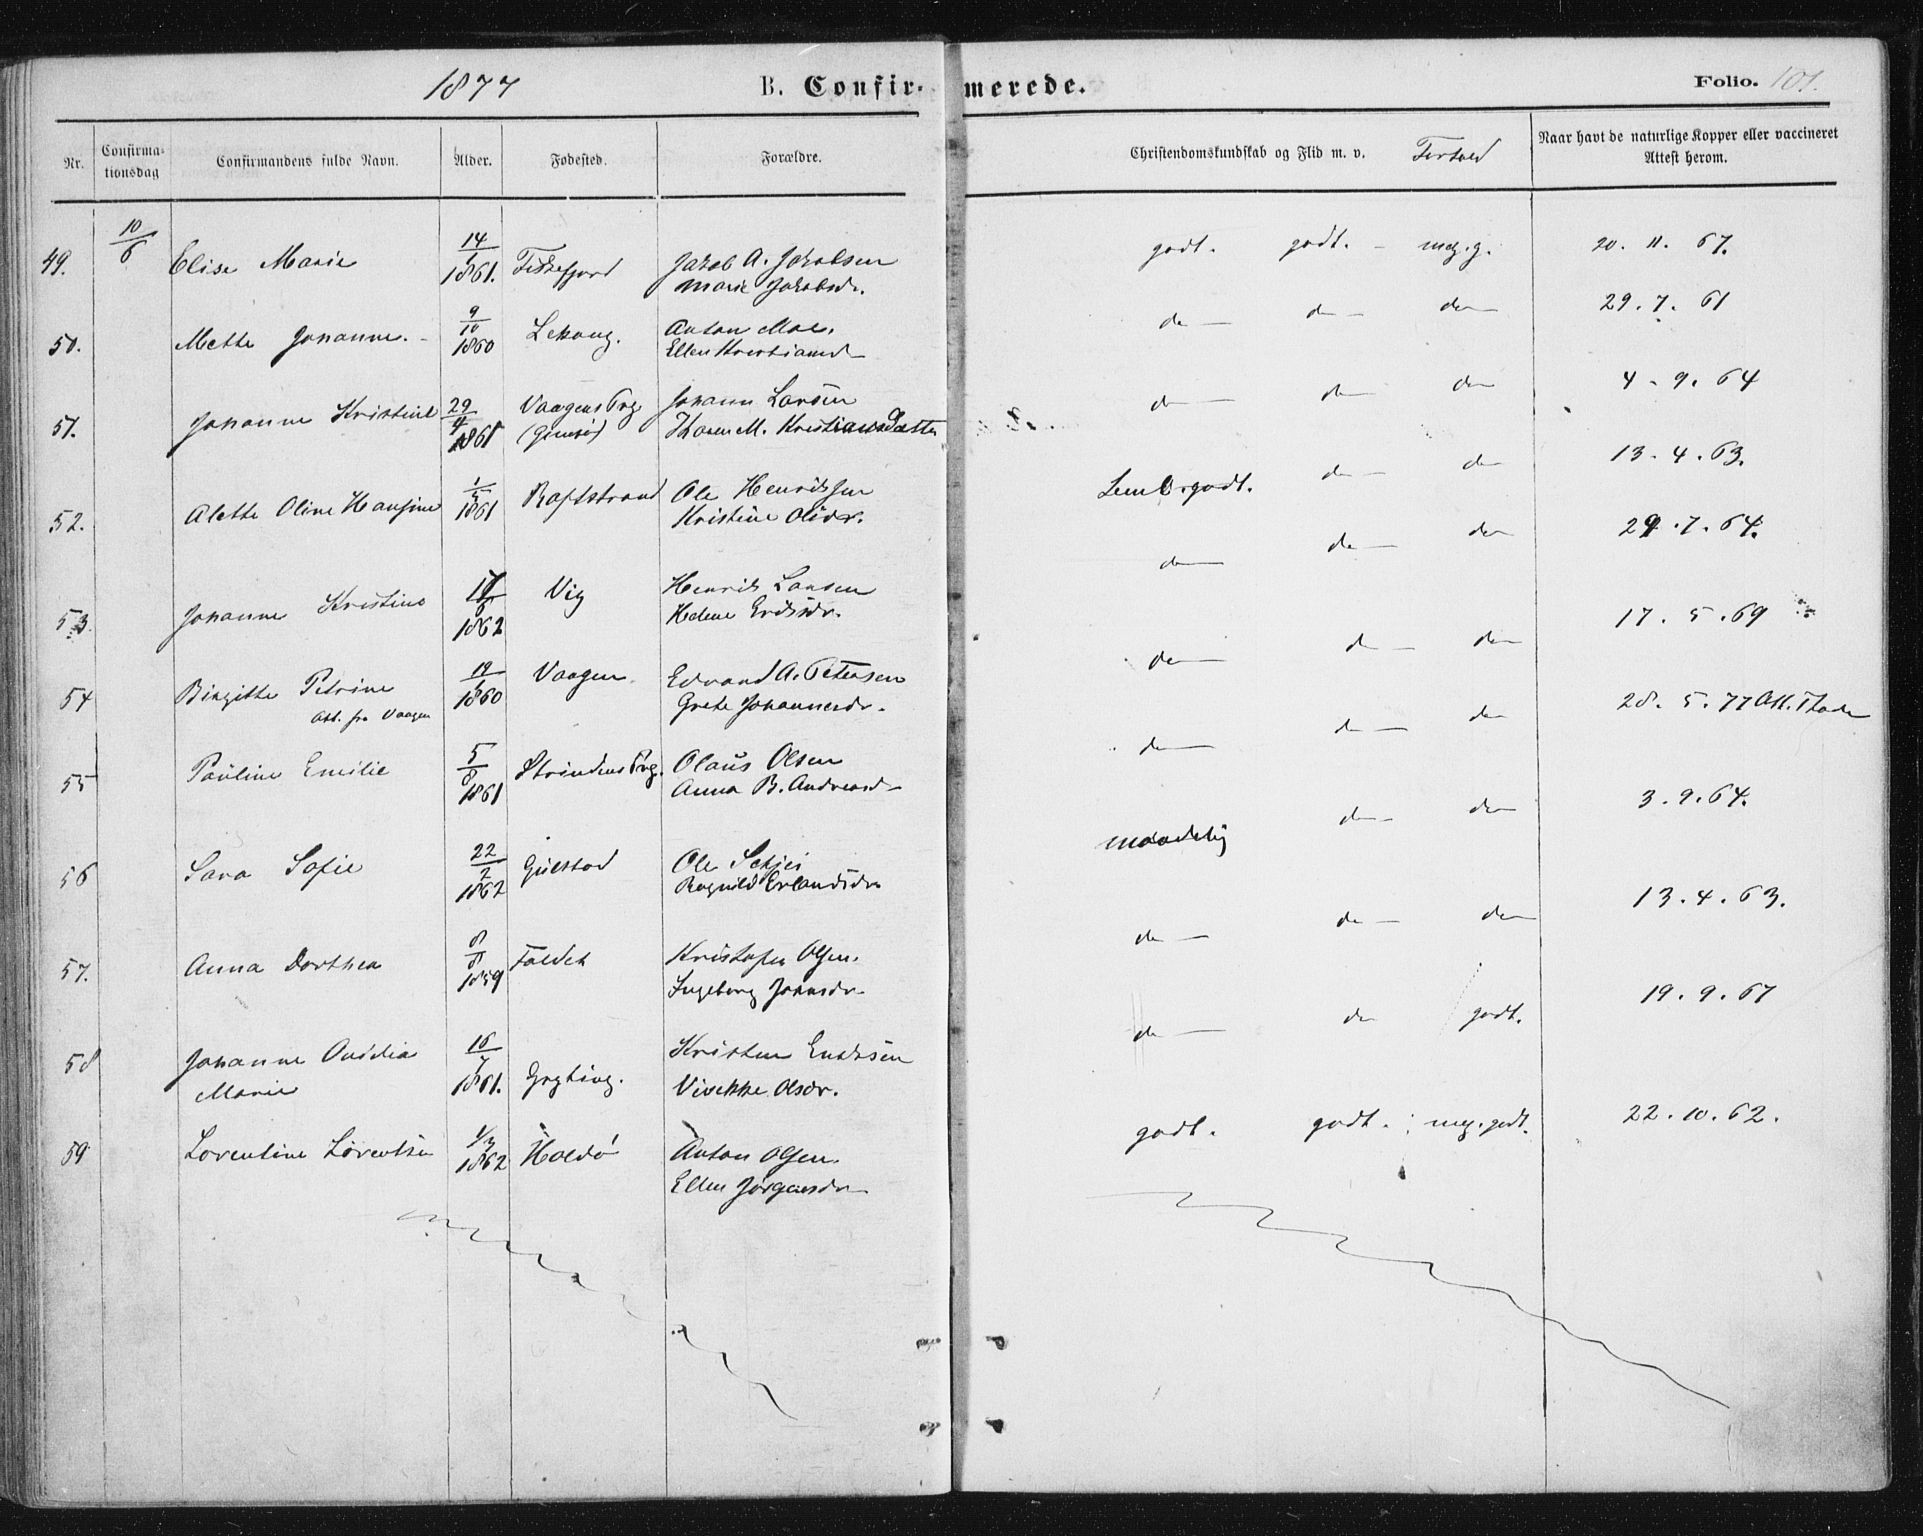 1877 B. Confirmerede. Folio. 101.
Nr. Confirmationsdag Confirmandens fulde Navn. Alder. Fødested. Forældre. Christendomskundskab og Flid m. v. Forhold Naar havt de naturlige Kopper eller vaccineret Attest herom.
49. 10/6 Elise Marie 14/1 1861. Fiskefjord Jakob A. Jakobsen godt. godt. – meg. g. 20. 11. 67.
Marie Jakobsdr.
50. Mette Johanne. 9/10 1860 Lekang. Anton Moe. do do do 29. 7. 61
Ellen Kristiansd
51. Johanne Kristine 29/4 1861 Vaagens Prg. Johann Larsen do do do 4. 9. 64
(Gimsø) Thoren M. Kristiansdatter
52. Alette Oline Hansine 1/5 1861 Raftstrand Ole Henriksen Temm. godt. do do 13. 4. 63.
Kristine Olsdr.
53. Johanne Kristine 1862 Vig Henrik Larsen do do do 29. 7. 64.
Helene Eriksdr.
54 Birgitte Petrine 1860 Vaagen. Edvard A. Petersen do do do 17. 5. 69
Att. fra Vaagen Grete Johannesdr.
55 Pauline Emilie 5/8 1861 Strindens Prg. Olaus Olsen do do do 28. 5. 77 Att.
Anna B. Andreasd
56 Sara Sofie 22/2 1862 Gulstad Ole maadelig do do 3. 9. 64.
Ragnild Erlandsdr
57. Anna Dorthea 8/8 1859 Foldet Kristofer Olsen. do do do 13. 4. 63.
Ingeborg Johnsdr
58 Johanne Ovidia 16/7 1861. Grytting. Kristen do do godt. 19. 9. 67
Marie Vivekke Olsdr.
59 Lorentine Lorentsen 1/3 1862 Holdø Anton Olsen. godt. godt. meg. godt. 22. 10. 62.
Ellen Jørgensdr